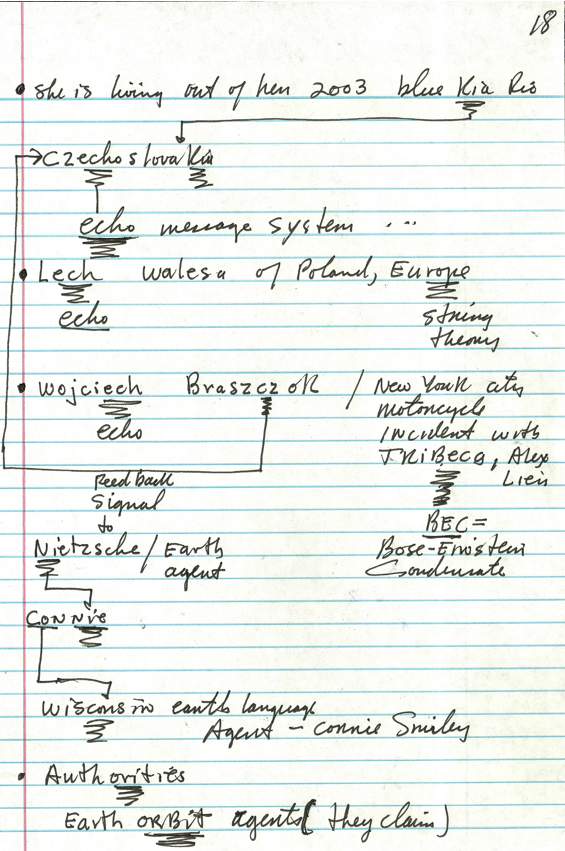 18
• She is living out of her 2003 blue Kia Rio
Czechoslovakia
echo message system ...
• Lech walesa of Poland, Europe
echo
string
theory
• Wojciech Braszczok / New York city
motorcycle
echo
Incident with
TriBeca, Alex
Lien
Feedback
Signal
to
BEC =
Bose-Einstein
Condensate
Nietzsche / Earth
agent
Connie
Wisconsin earth language
Agent - Connie Smiley
• Authorities
Earth orBit agents (they claim)